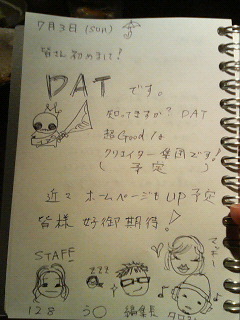 7月3日(SUN)
皆さん初めまして!
DAT です。
知ってますか? DAT
超Goodな
クリエイター集団です!
(予定)
近々 ホームページもUP予定
皆様 好御期待!
STAFF
マッチー
zzz
128
う○
編集長